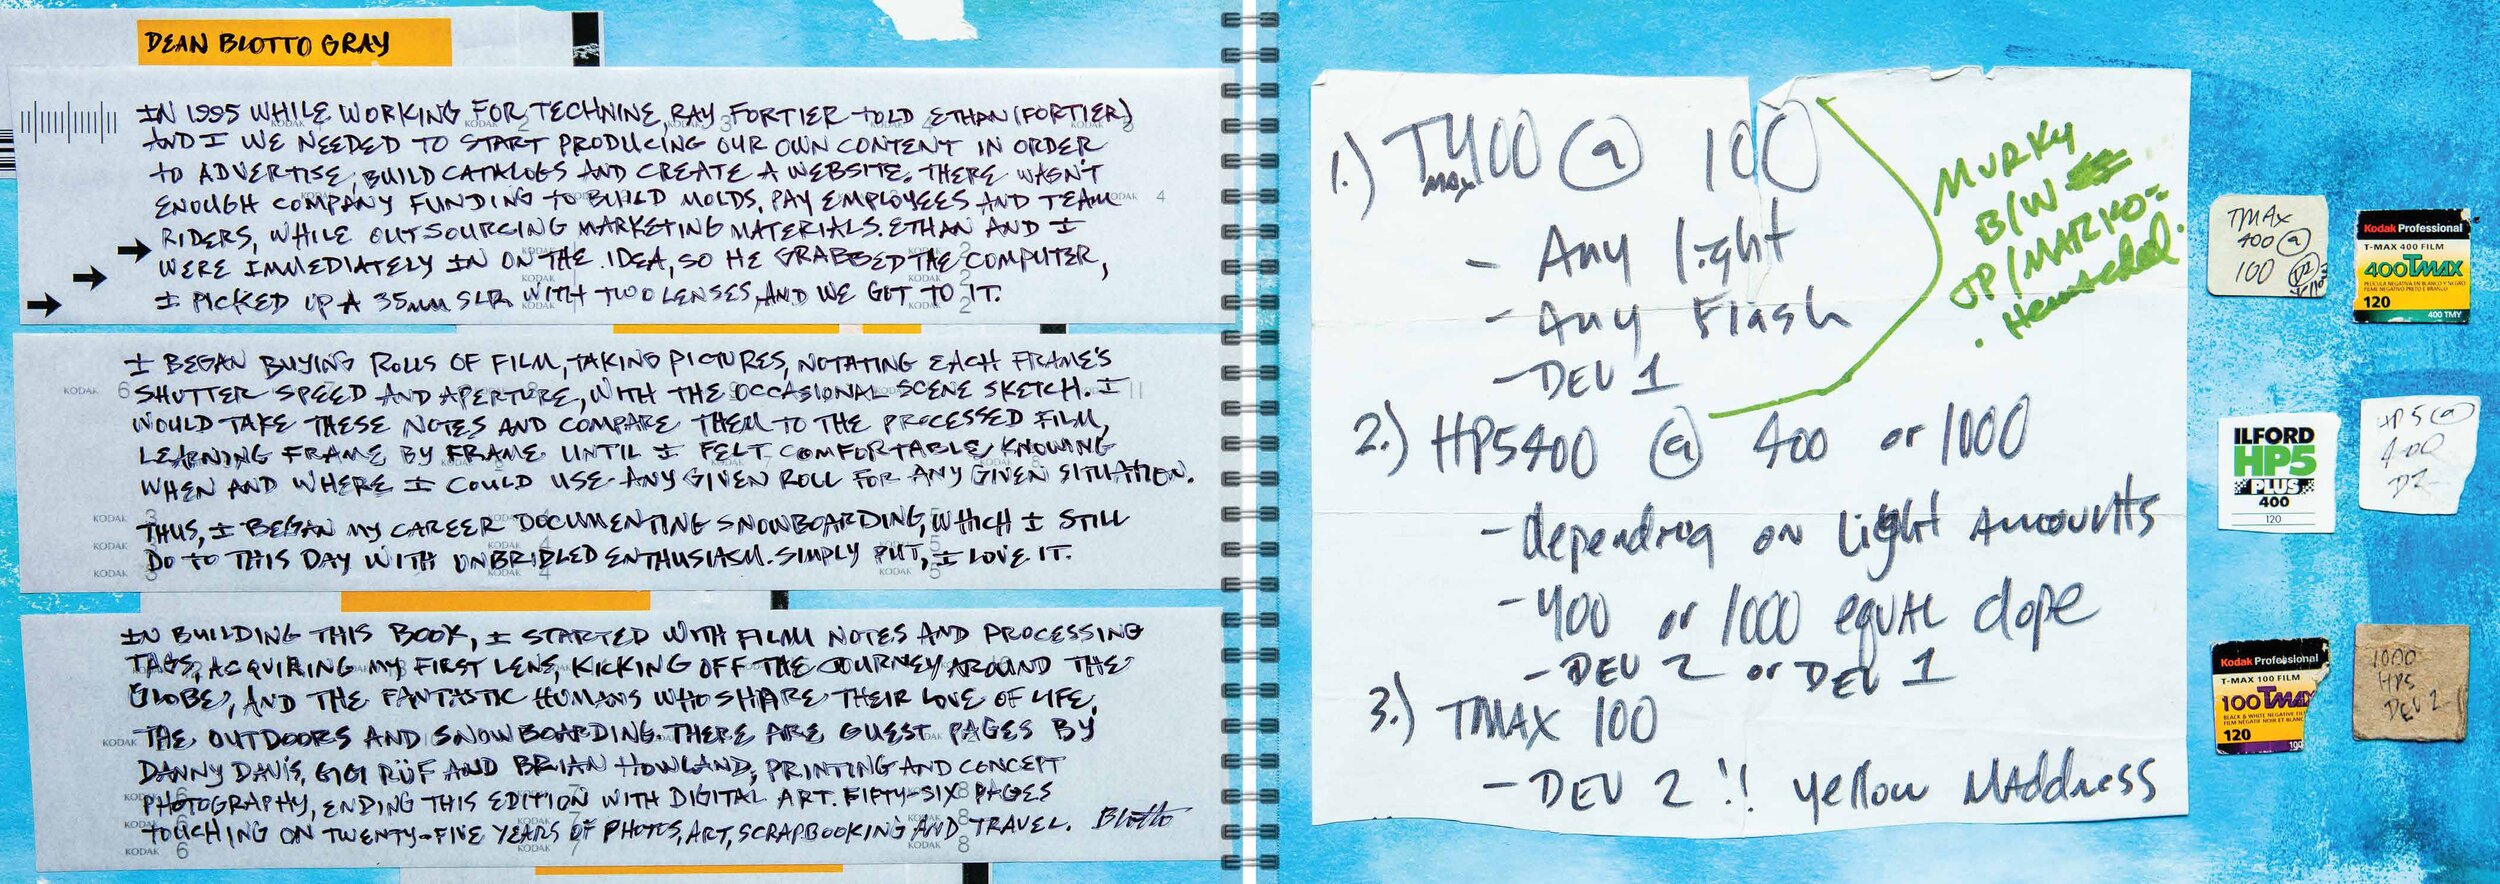 DEAN BLOTTO GRAY
IN 1995 WHILE WORKING FOR TECHNINE, RAY FORTIER TOLD ETHAN (FORTIER)
AND I WE NEEDED TO START PRODUCING OUR OWN CONTENT IN ORDER
TO ADVERTISE, BUILD CATALOGS AND CREATE A WEBSITE. THERE WASN'T
ENOUGH COMPANY FUNDING TO BUILD MOLDS, PAY EMPLOYEES AND TEAM
RIDERS, WHILE OUTSOURCING MARKETING MATERIALS. ETHAN AND I
WERE IMMEDIATELY IN ON THE IDEA, SO HE GRABBED THE COMPUTER,
I PICKED UP A 35mm SLR WITH TWO LENSES, AND WE GOT TO IT.
I BEGAN BUYING ROLLS OF FILM, TAKING PICTURES, NOTATING EACH FRAME'S
SHUTTER SPEED AND APERTURE, WITH THE OCCASIONAL SCENE SKETCH. I
WOULD TAKE THESE NOTES AND COMPARE THEM TO THE PROCESSED FILM,
LEARNING FRAME BY FRAME UNTIL I FELT COMFORTABLE KNOWING
WHEN AND WHERE I COULD USE ANY GIVEN ROLL FOR ANY GIVEN SITUATION.
THUS, I BEGAN MY CAREER DOCUMENTING SNOWBOARDING, WHICH I STILL
DO TO THIS DAY WITH UNBRIDLED ENTHUSIASM. SIMPLY PUT, I LOVE IT.
IN BUILDING THIS BOOK, I STARTED WITH FILM NOTES AND PROCESSING
TAGS, ACQUIRING MY FIRST LENS, KICKING OFF THE JOURNEY AROUND THE
GLOBE, AND THE FANTASTIC HUMANS WHO SHARE THEIR LOVE OF LIFE,
THE OUTDOORS AND SNOWBOARDING. THERE ARE GUEST PAGES BY
DANNY DAVIS, GIGI RÜF AND BRIAN HOWLAND, PRINTING AND CONCEPT
PHOTOGRAPHY, ENDING THIS EDITION WITH DIGITAL ART. FIFTY-SIX PAGES
TOUCHING ON TWENTY-FIVE YEARS OF PHOTOS, ART, SCRAPBOOKING AND TRAVEL. Blotto
1.) T400 @ 100
MAX
- Any light
- Any Flash
- DEV 1
2.) HP5400 @ 400 or 1000
- depending on light Amounts
- 400 or 1000 equal dope
- DEV 2 or DEV 1
3.) TMAX 100
- DEV 2 !! yellow Maddness
MURKY
B/W
JP/MARKO-
TMAX
400 @
100
Kodak Professional
T-MAX 400 FILM
400TMAX
PELÍCULA NEGATIVA EN BLANCO Y NEGRO
FILME NEGATIVO PRETO E BRANCO
120
400 TMY
ILFORD
HP5
PLUS
400
120
HP5 @
400
D2
Kodak Professional
T-MAX 100 FILM
100TMAX
120
100
1000
HP5
DEV 2